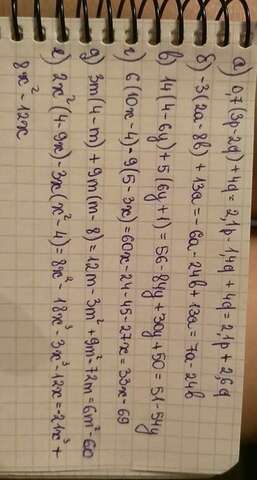 а) 0,7(3p-2d)+4d=2,1p-1,4d+4d=2,1p+2,6d
б) -3(2a-8b)+13a=-6a-24b+13a=7a-24b
в) 14(4-6y)+5(6y+1)=56-84y+30y+50=51-54y
г) 6(10x-4)-9(5-3x)=60x-24-45-27x=33x-69
д) 3m(4-m)+9m(m-8)=12m-3m²+9m²-72m=6m²-60
е) 2x²(4-9x)-3x(x²-4)=8x²-18x³-3x³-12x=-21x³+
8x²-12x